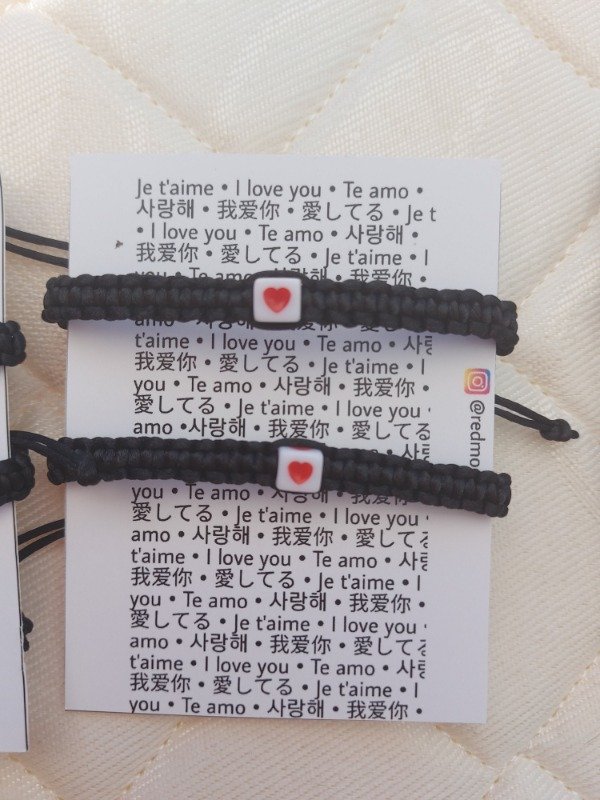 Je t'aime • I love you • Te amo •
사랑해 • 我爱你 • 愛してる • Je t
• I love you • Te amo • 사랑해 •
我爱你 • 愛してる • Je t'aime • I
you • Te amo • 사랑해 • 我爱你 •
amo • 사랑해 • 我爱你 • 愛してる
t'aime • I love you • Te amo • 사랑
我爱你 • 愛してる • Je t'aime • I
you • Te amo • 사랑해 • 我爱你 •
愛してる • Je t'aime • I love you •
amo •사랑해 • 我爱你 • 愛してる
you • Te amo • 사랑해 • 我爱你 •
愛してる • Je t'aime • I love you •
amo • 사랑해 • 我爱你 • 愛してる
t'aime • I love you • Te amo • 사랑
我爱你 • 愛してる • Je t'aime • I
you • Te amo • 사랑해 • 我爱你 •
愛してる • Je t'aime • I love you •
amo • 사랑해 • 我爱你 • 愛してる
t'aime • I love you • Te amo • 사랑
我爱你 • 愛してる • Je t'aime • I
you • Te amo • 사랑해 • 我爱你 •
@redmo